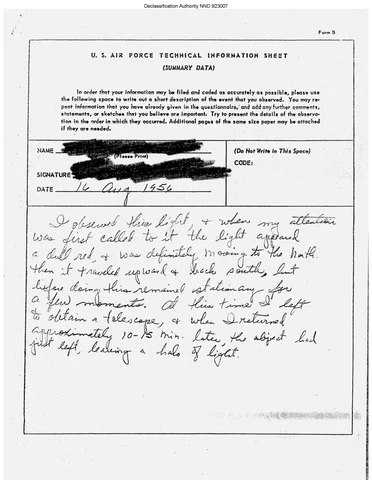 Declassification Authority NND 923007
Form B
U. S. AIR FORCE TECHNICAL INFORMATION SHEET
(SUMMARY DATA)
In order that your information may be filed and coded as accurately as possible, please use
the following space to write out a short description of the event that you observed. You may re-
peat information that you have already given in the questionnaire, and add any further comments,
statements, or sketches that you believe are important. Try to present the details of the observa-
tion in the order in which they occurred. Additional pages of the same size paper may be attached
if they are needed.
NAME
(Please Print)
SIGNATURE
DATE 16 Aug 1956
(Do Not Write in This Space)
CODE:
I observed this light, & when my attention
was first called to it the light appeared
a dull red, & was definitely moving to the North
then it traveled upward & back south, but
before doing this remained stationary for
a few moments. At this time I left
to obtain a telescope, & when I returned
approximately 10-15 min. later, the object had
just left, leaving a halo of light.